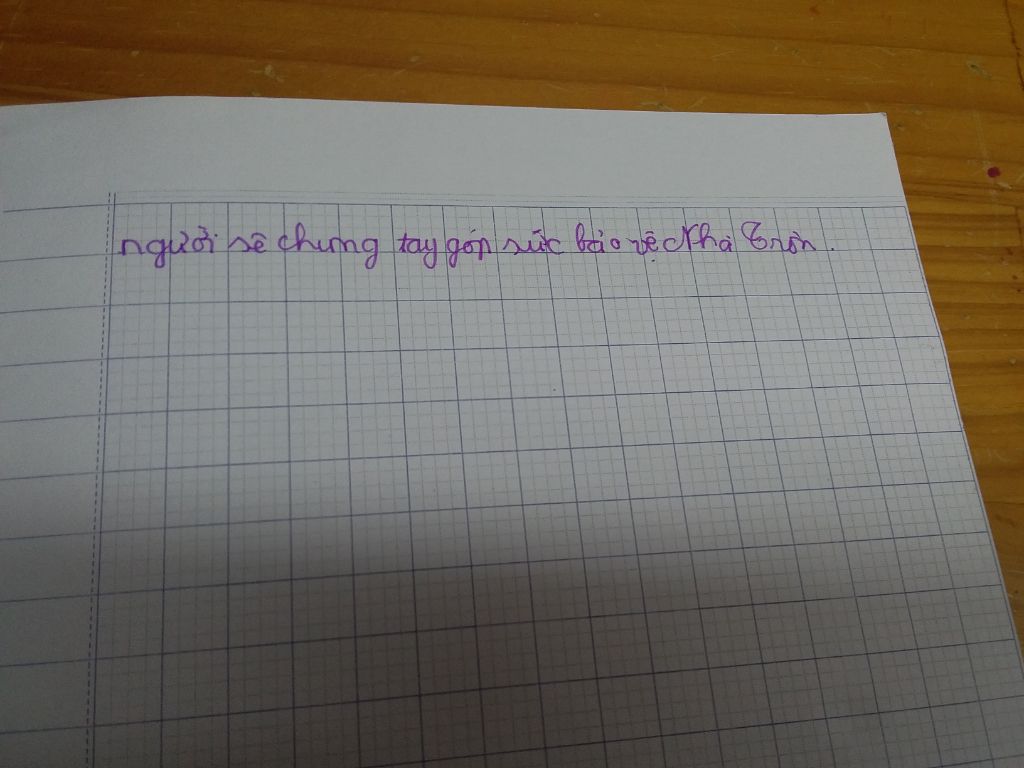 người sẽ chung tay góp sức bảo vệ Nhà Tròn.